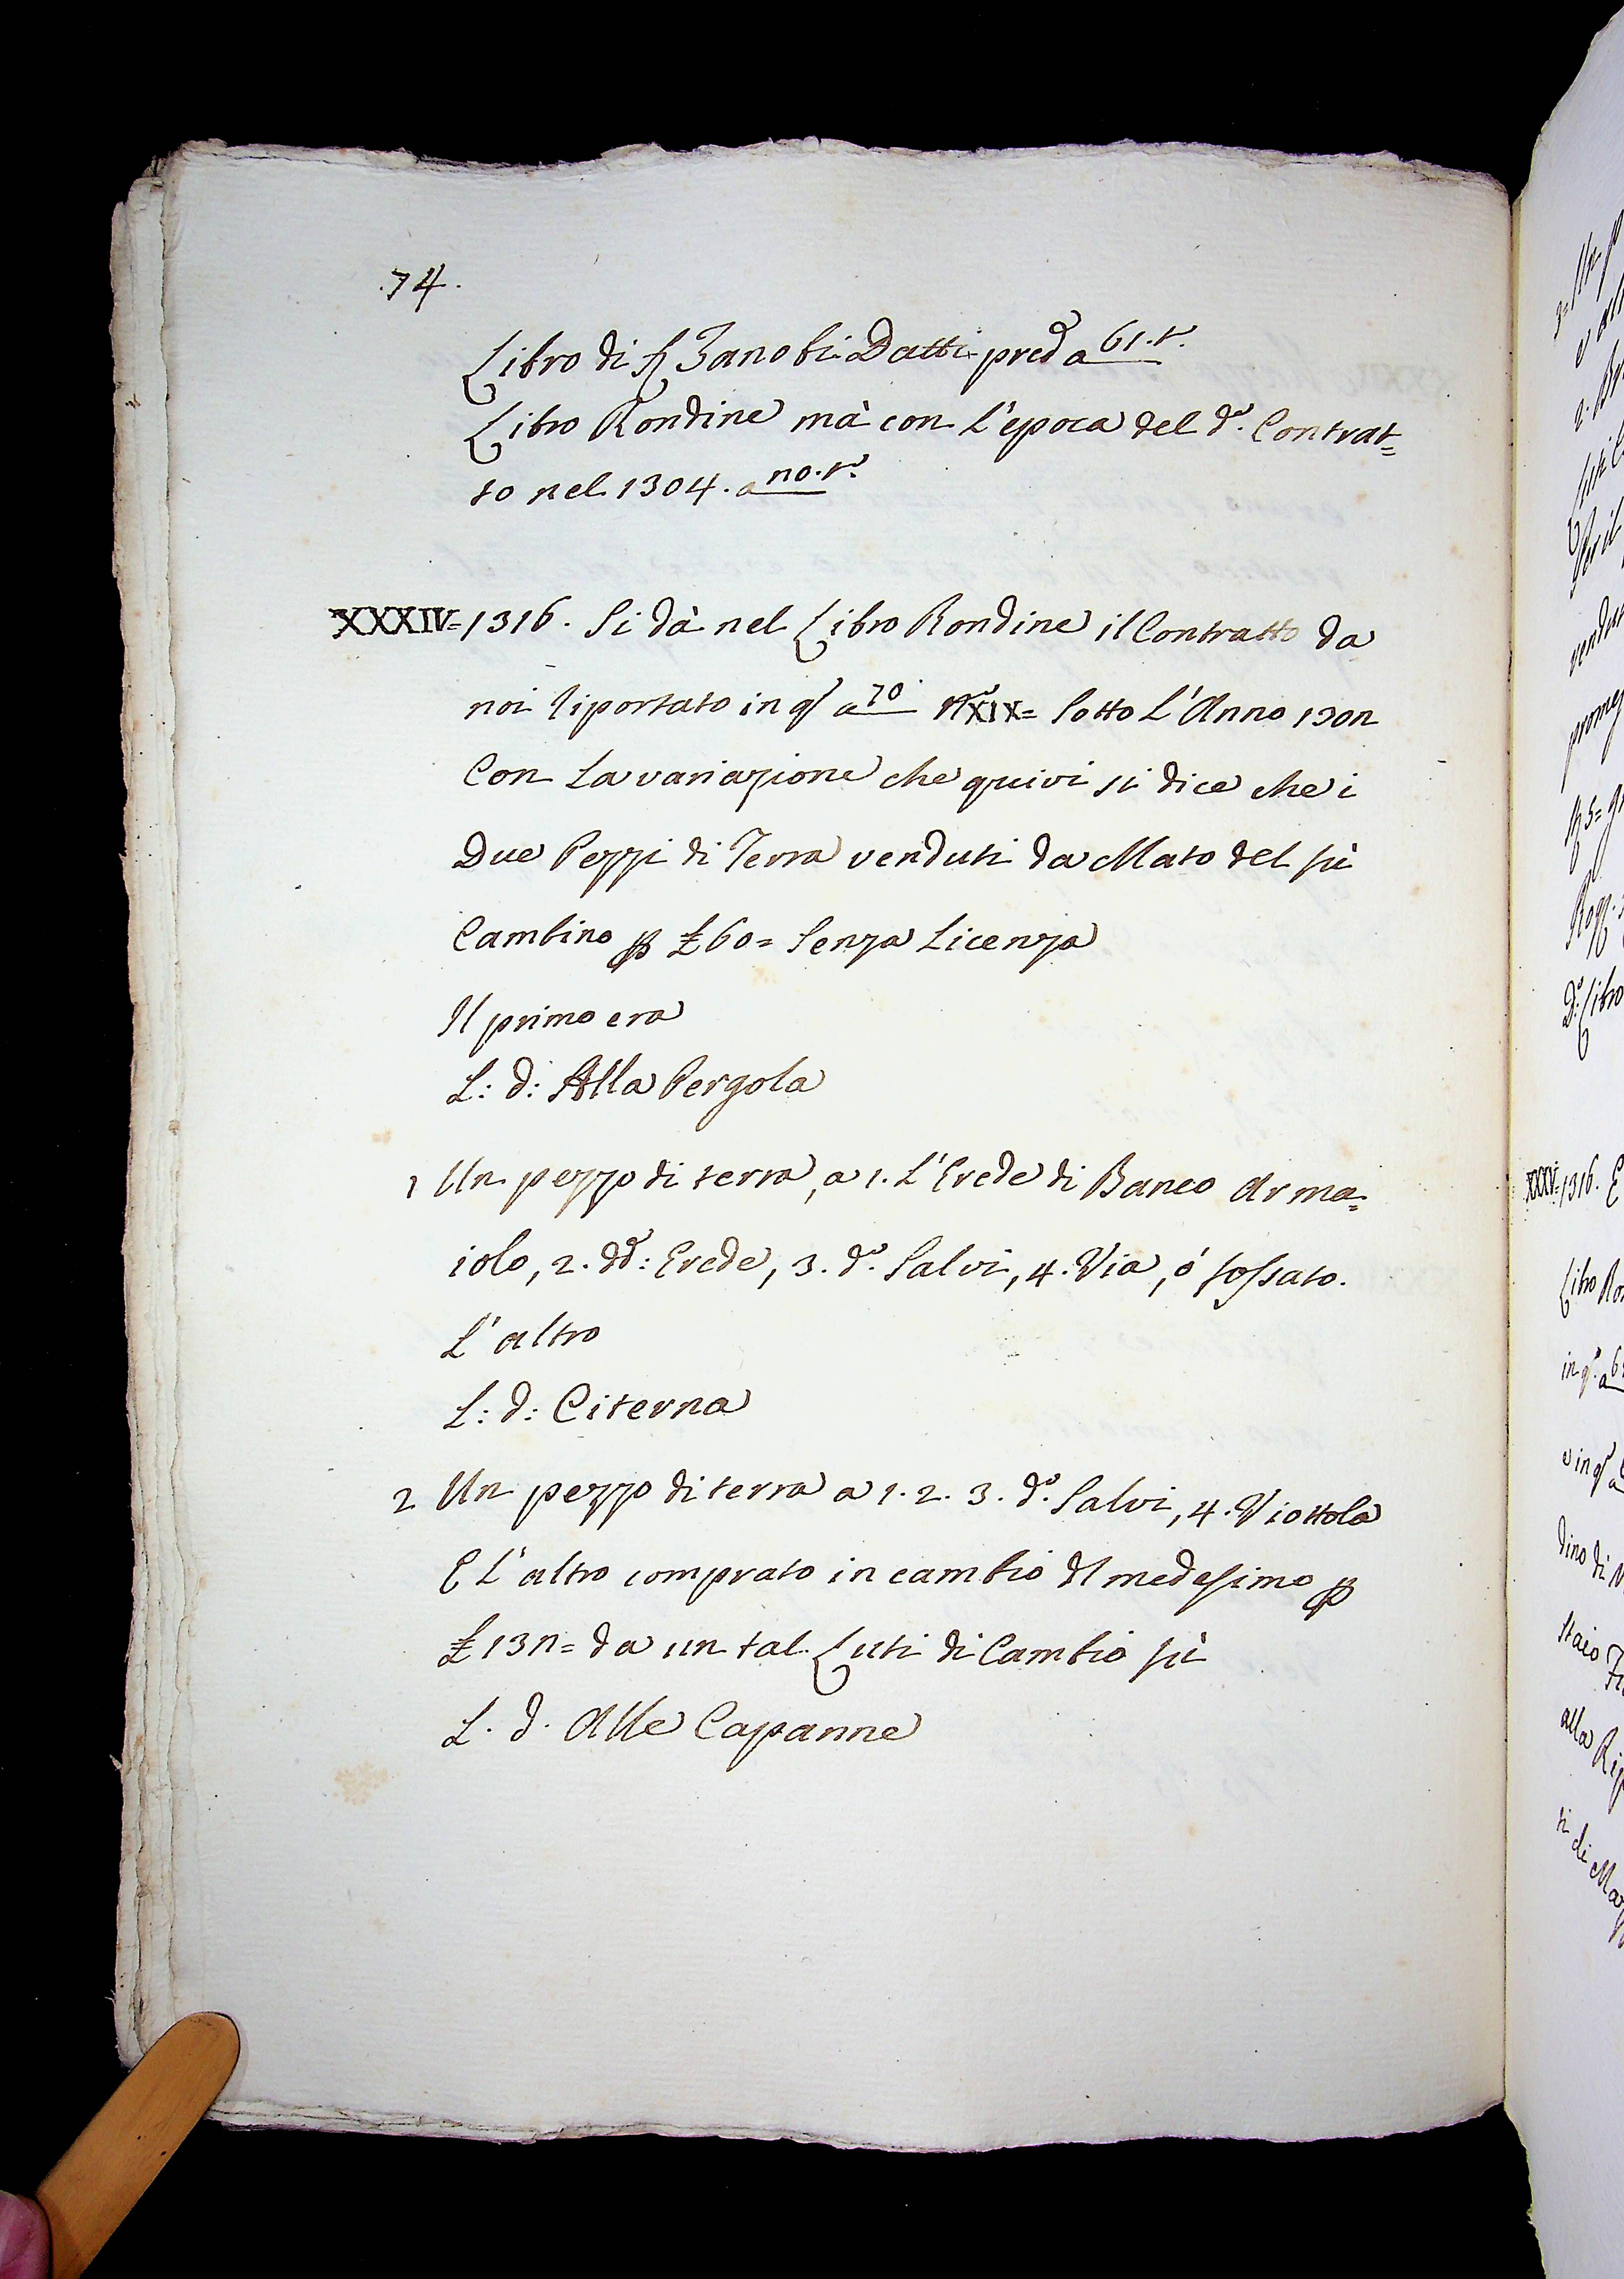 .74.
Libro di S Zanobi Datti pred a 61.t.
Libro Rondine mà con l'epoca del d.º Contrat=
to nel 1304. a no.t.
XXXIV=1316. Si dà nel Libro Rondine il Contratto da
noi riportato in q a 70 Nº XIX= sotto L'Anno 130n
Con La variazione che quivi si dice che i
Due Pezzi di Terra venduti da Mato del fù
Cambino p £ 60= Senza Licenza
Il primo era
L: d: Alla Pergola
1 Un pezzo di terra, a 1. L'Erede di Banco Arma=
iolo, 2. dd: Erede, 3. d.º Salvi, 4. Via, ó fossato.
L'altro
L: d: Citerna
2 Un pezzo di terra a 1. 2. 3. d.º Salvi, 4. Viottola
E L'altro comprato in cambio dl medesimo p
£ 13n= da un tal Luti di Cambio fù
L. d. Alle Capanne
XXXV=1316. E
Libro Ro
in q. a 6
alla Rip
di Ma